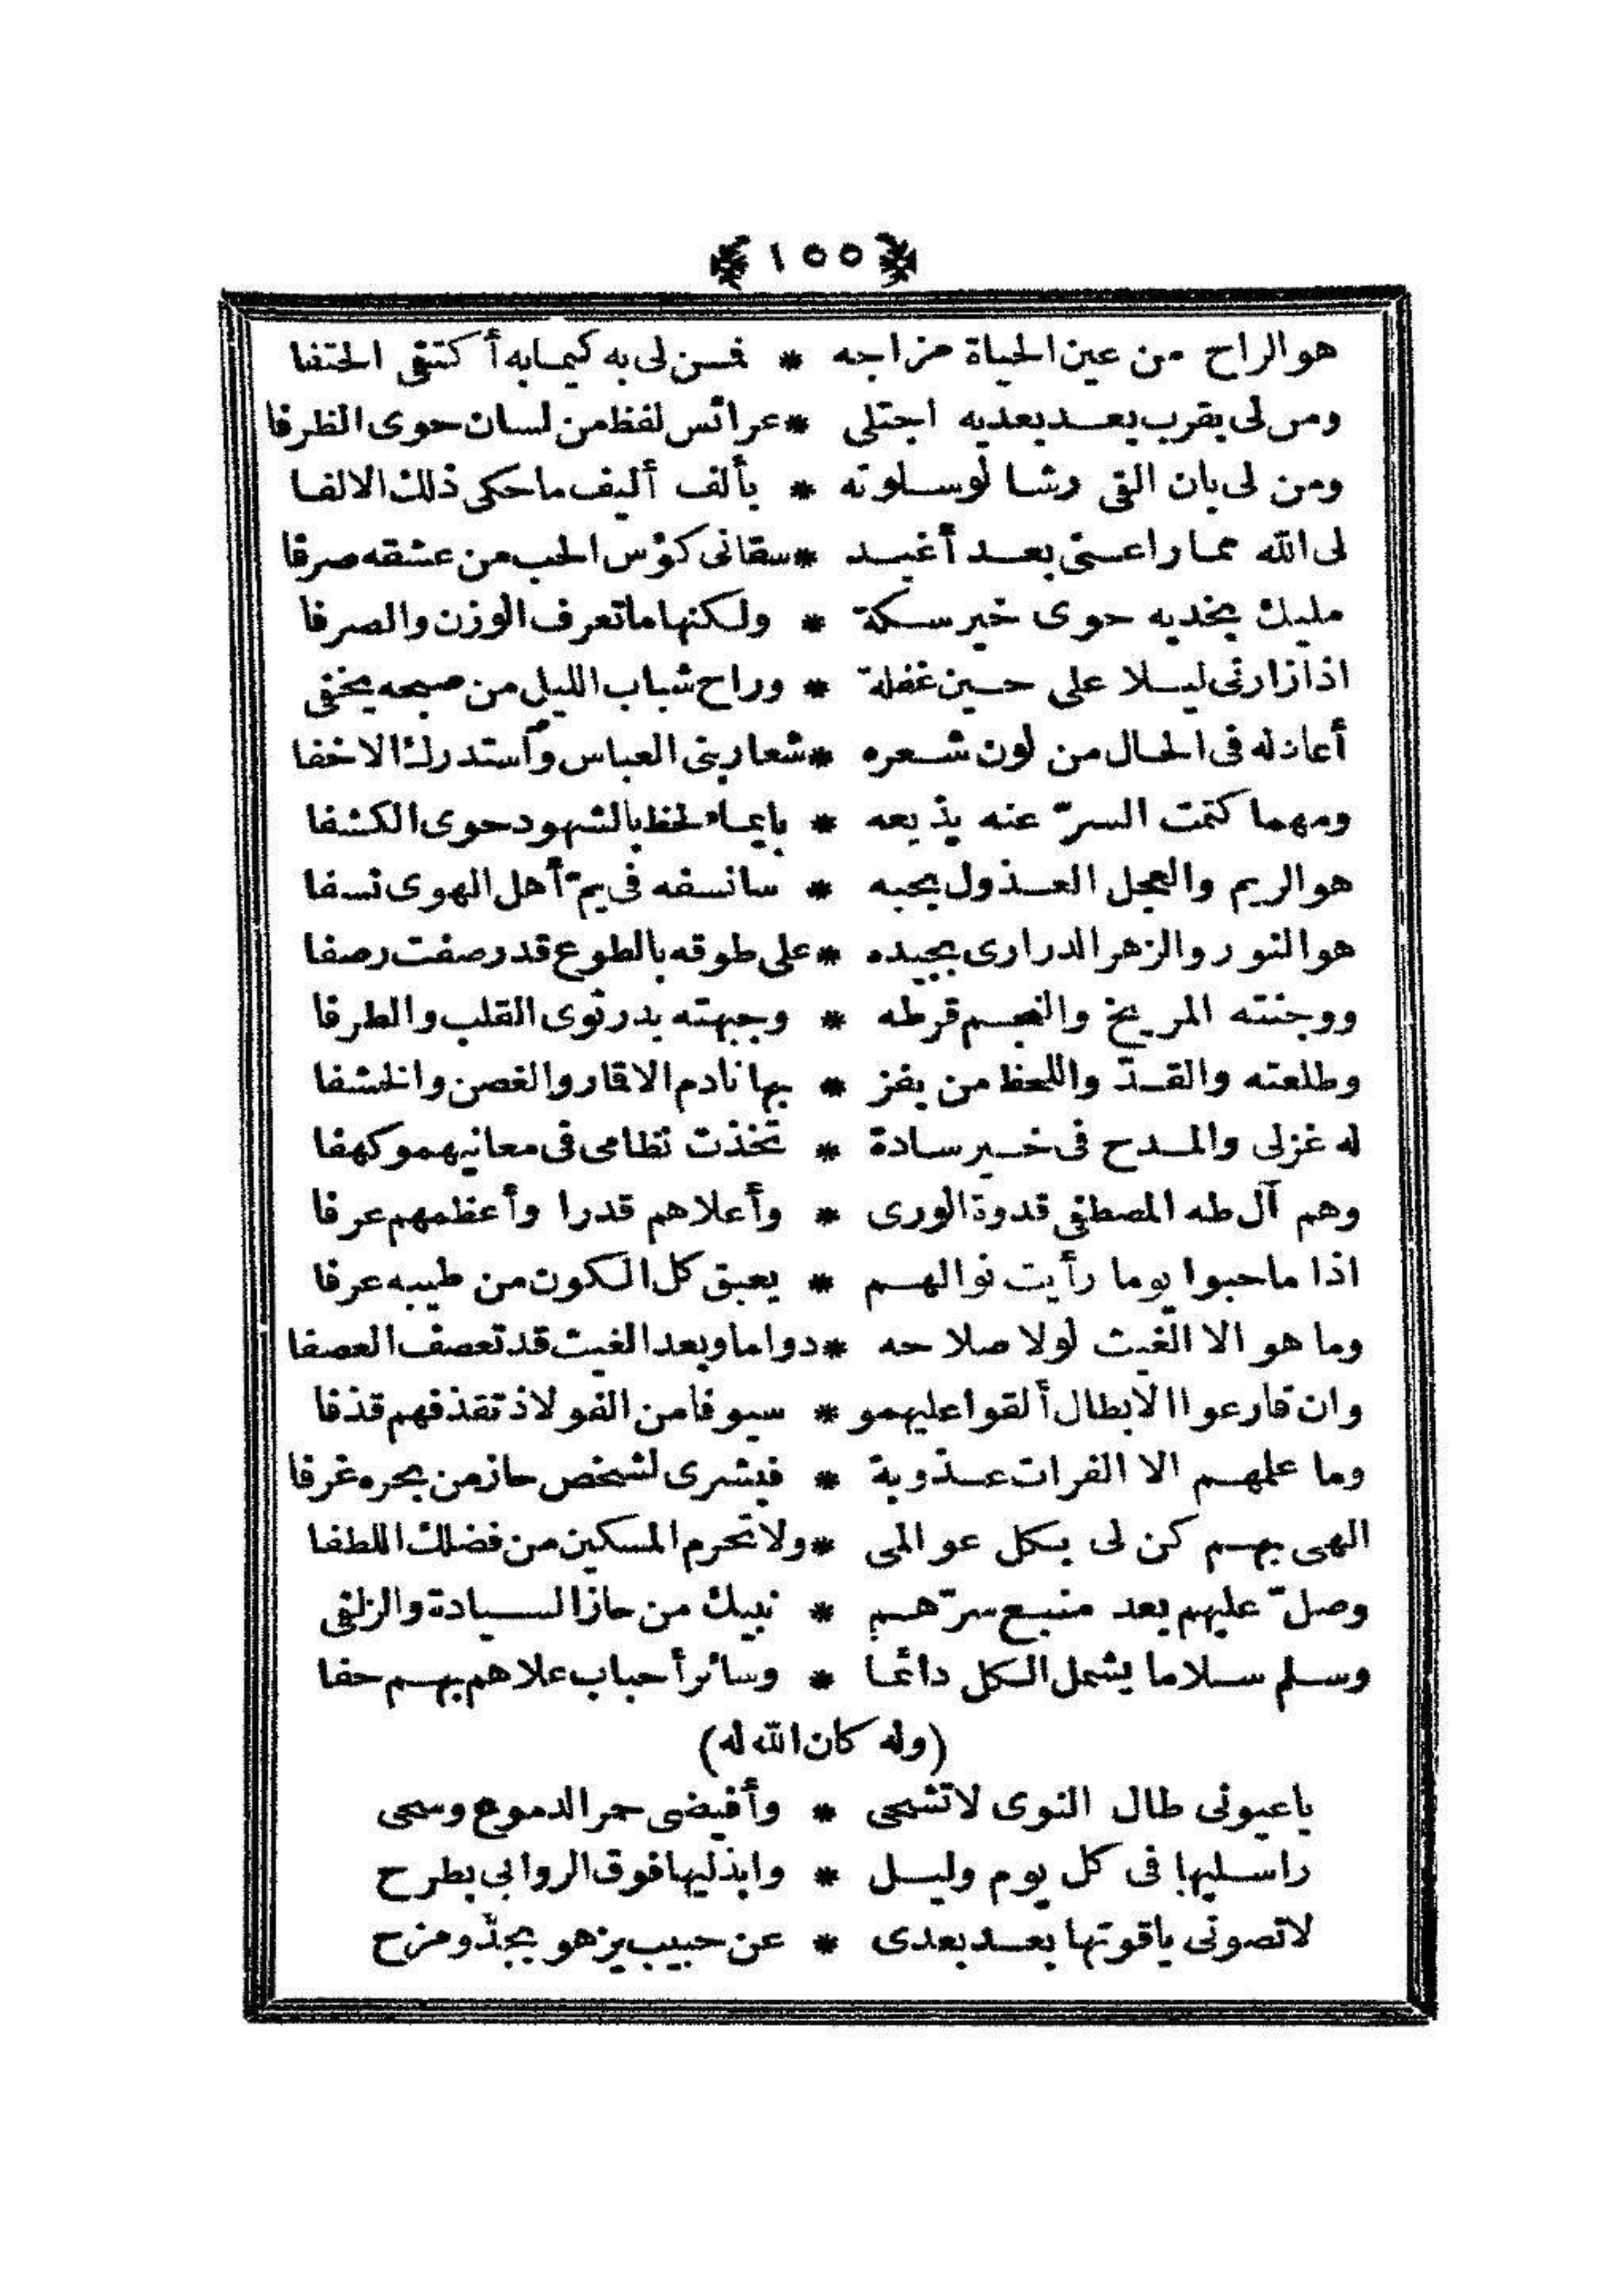 ١٥٥
هو الراح من عين الحياة مزاجه * فمن لى به كيما به أكتفى الحتفا
ومن لى بقرب بعد بعد به اجتلى * عرائس لفظ من لسان حوى الظرفا
ومن لى بان التقى رشا لو سلوته * بألف أليف ما حكى ذلك الالفا
لى الله مما راعنى بعد أغيد * سقانى كؤس الحب من عشقه صرفا
مليك بخديه حوى خير سكة * ولكنها ما تعرف الوزن والصرفا
اذا زارنى ليلا على حين غفلة * وراح شباب الليل من صبحه يخفى
أعاد له فى الحال من لون شعره * شعار بنى العباس واستدرك الاخفا
ومهما كتمت السرّ عنه يذيعه * بايماء لحظ بالشهود حوى الكشفا
هو الريم والعجل العذول يحبه * سانسفه فى يمّ أهل الهوى نسفا
هو النور والزهر الدرارى بجيده * على طوقه بالطوع قد رصفت رصفا
ووجنته المريخ والنجم قرطه * وجبهته بدر نوى القلب والطرفا
وطلعته والقدّ واللحظ من يفز * بها نادم الاقمار والغصن والخشفا
له غزلى والمدح فى خير سادة * تخذت نظامى فى معانيهمو كهفا
وهم آل طه المصطفى قدوة الورى * وأعلاهم قدرا وأعظمهم عرفا
اذا ما حبوا يوما رأيت نوالهم * يعبق كل الكون من طيبه عرفا
وما هو الا الغيث لولا صلاحه * دواما وبعد الغيث قد تعصف العصفا
وان قارعوا الابطال ألقوا عليهمو * سيوفا من الفولاذ تقذفهم قذفا
وما علمهم الا الفرات عذوبة * فبشرى لشخص حاز من بحره غرفا
الهى بهم كن لى بكل عوالمى * ولا تحرم المسكين من فضلك اللطفا
وصلّ عليهم بعد منبع سرّهم * نبيك من حاز السيادة والزلفى
وسلم سلاما يشمل الكل دائما * وسائر أحباب علاهم بهم حفا
(وله كان الله له)
يا عيونى طال النوى لا تشحى * وأفيضى حمر الدموع وسحى
راسليها فى كل يوم وليل * وابذليها فوق الروابى بطرح
لا تصونى ياقوتها بعد بعدى * عن حبيب يزهو بجدّ ومزح